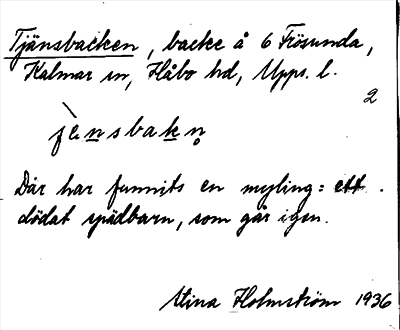 Tjänsbacken, backe å 6 Frösunda,
Kalmar sn, Håbo hd, Upps. l.
2
jènsbakn̥
Där har funnits en myling: ett
dödat spädbarn, som går igen.
Stina Holmström 1936